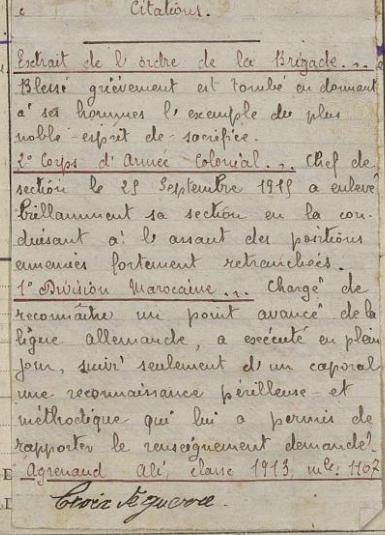 Citations.
Extrait de l'ordre de la Brigade...
Blessé grièvement est tombé en donnant
à ses hommes l'exemple du plus
noble esprit de sacrifice.
2° Corps d'Armée Colonial... Chef de
section le 25 Septembre 1915 a enlevé
brillamment sa section en la con-
duisant à l'assaut des positions
ennemies fortement retranchées.
1° Division Marocaine... Chargé de
reconnaître un point avancé de la
ligne allemande, a exécuté en plein
jour, suivi seulement d'un caporal
une reconnaissance périlleuse et
méthodique qui lui a permis de
rapporter le renseignement demandé.
Agrenaud Alé classe 1913 mle: 1107
Croix de guerre.